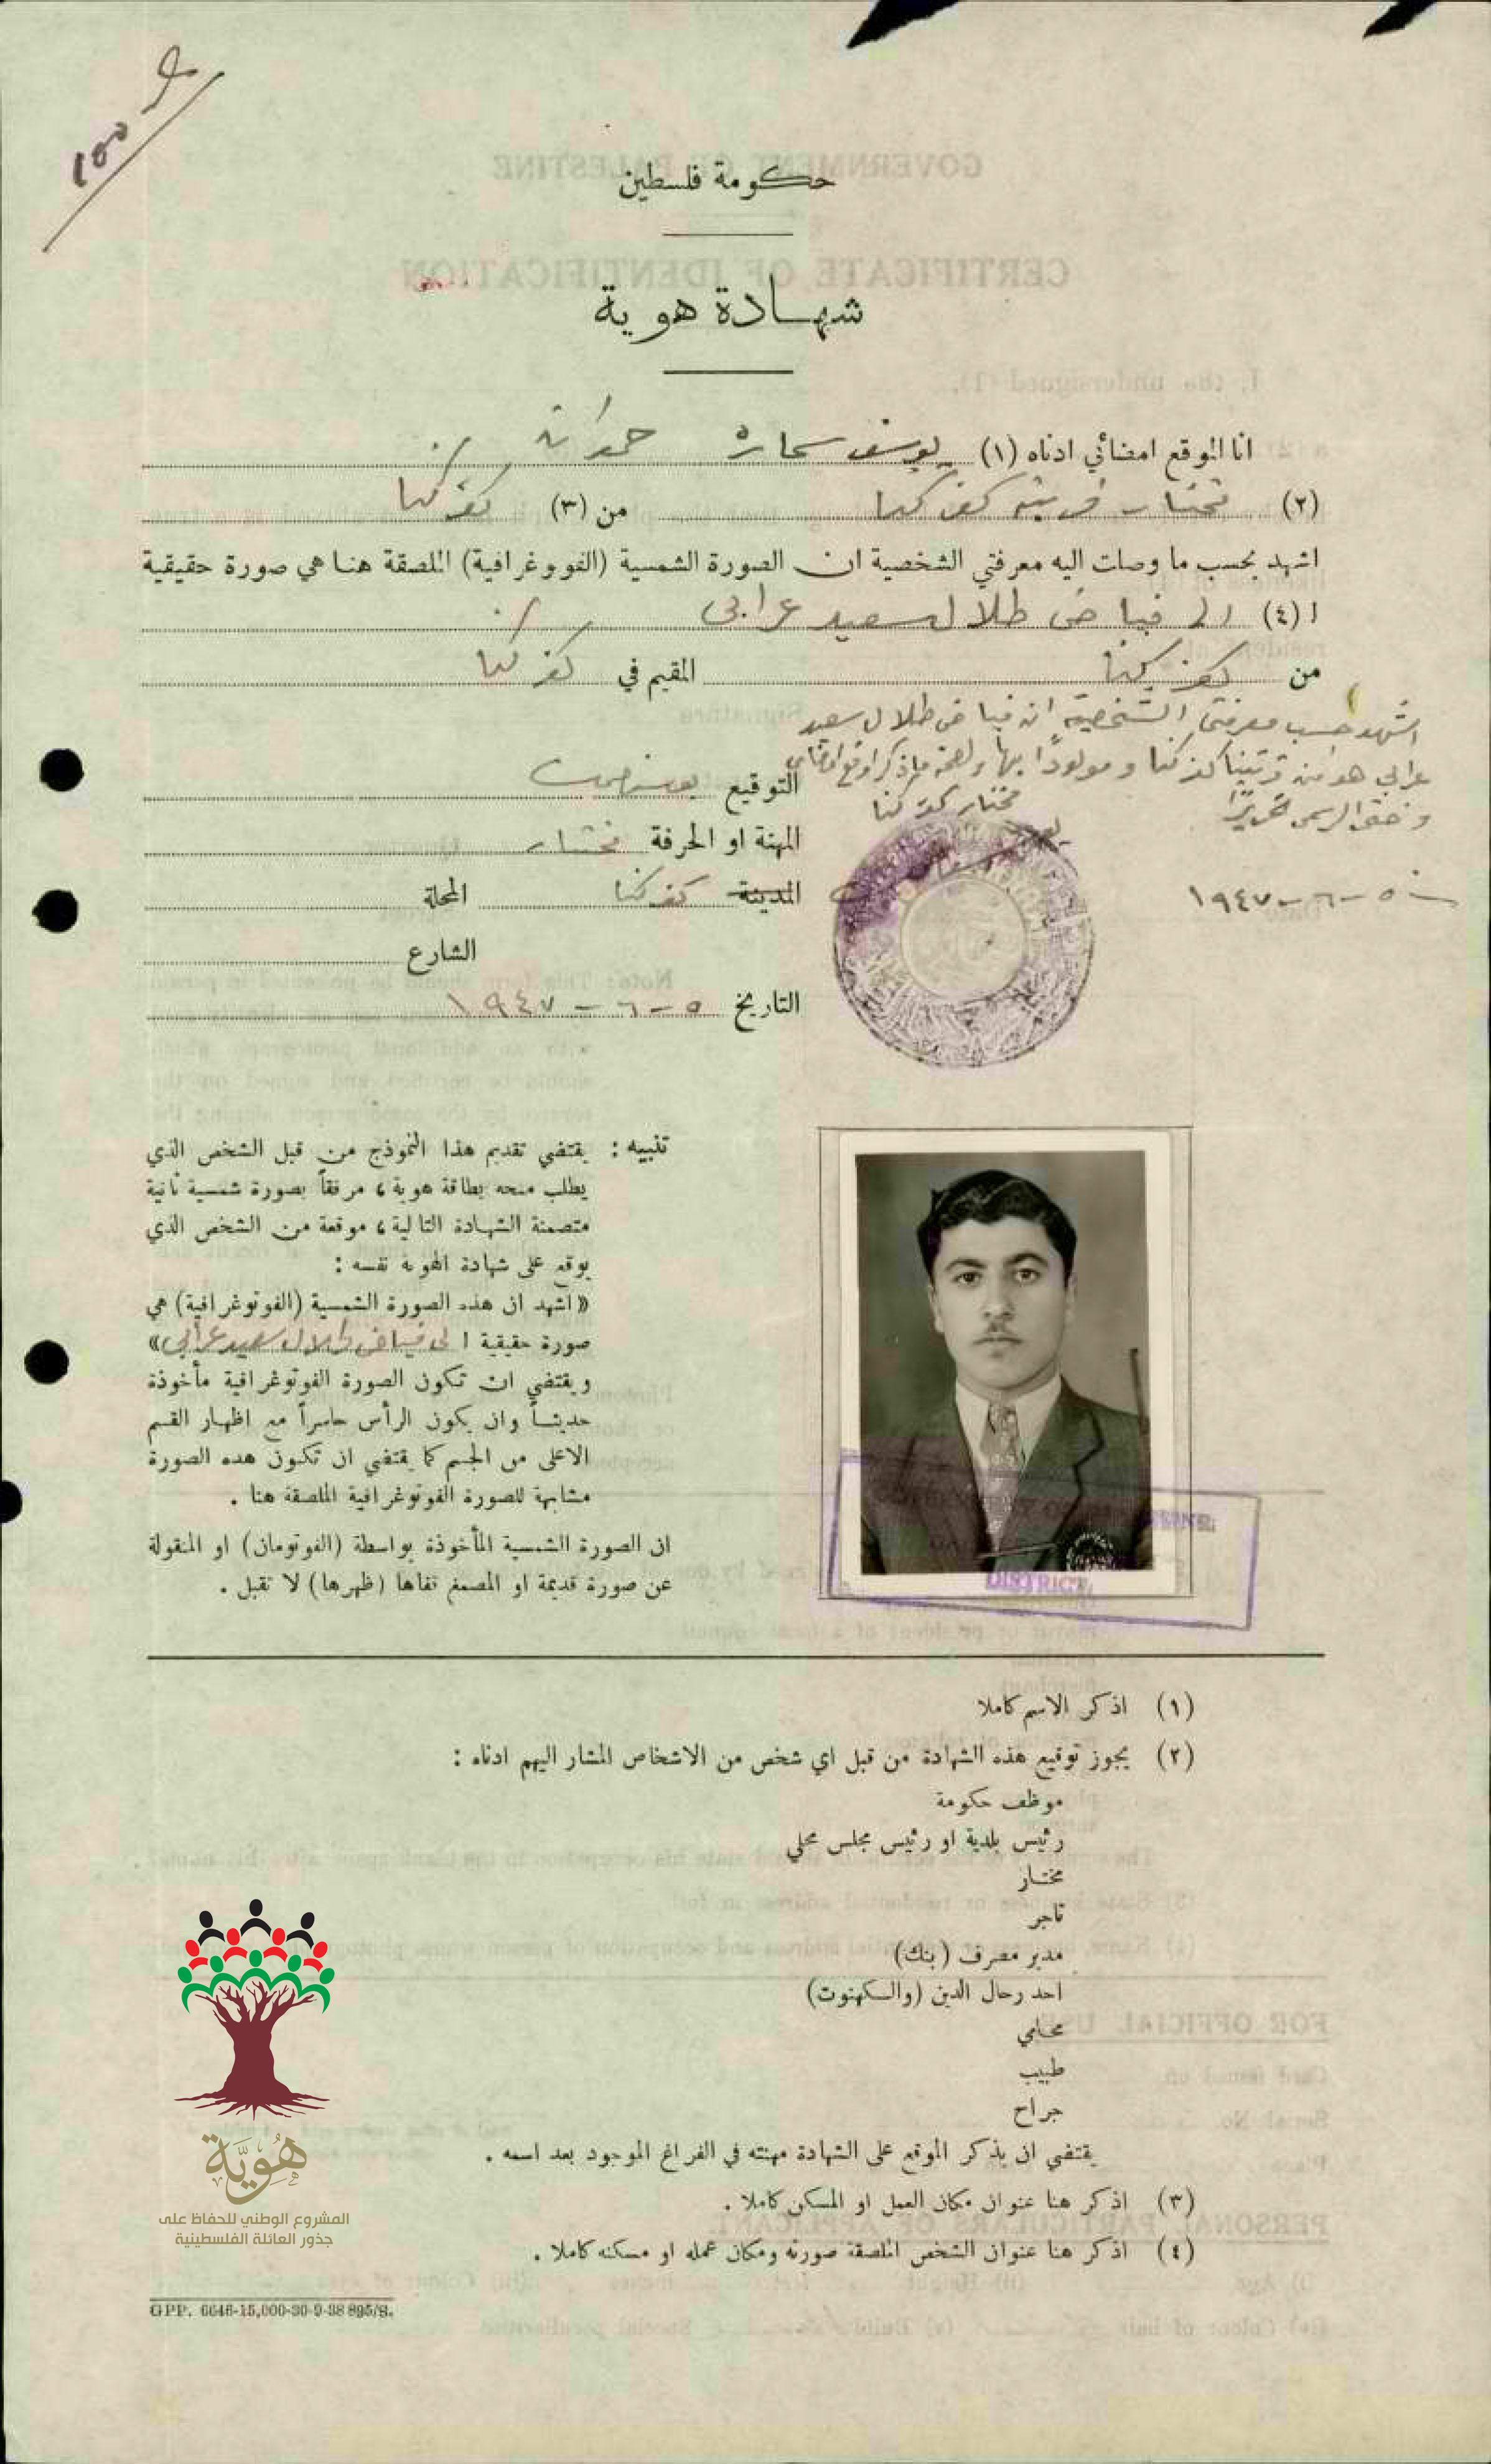 حكومة فلسطين
شهادة هوية
انا الموقع امضائي ادناه (١) يوسف سماره حمدان
(٢) مختار قرية كفركنا من (٣) كفركنا
اشهد بحسب ما وصلت اليه معرفتي الشخصية ان الصورة الشمسية (الفوتوغرافية) الملصقة هنا هي صورة حقيقية
ا (٤) الى فياض طلال سعيد عرابي
من كفركنا المقيم في كفركنا
اشهد حسب معرفتي الشخصية ان فياض طلال سعيد
عرابي هو من قريتنا كفركنا و مولودًا بها
و ختمي الرسمي تحريرًا
مختار كفركنا
٥-٦-١٩٤٧
التوقيع
المهنة او الحرفة مختار
المدينة كفركنا المحلة
الشارع
التاريخ ٥-٦-١٩٤٧
تنبيه : يقتضي تقديم هذا النموذج من قبل الشخص الذي
يطلب منحه بطاقة هوية ، مرفقاً بصورة شمسية ثانية
متضمنة الشهادة التالية ، موقعة من الشخص الذي
يوقع على شهادة الهوية نفسه :
« اشهد ان هذه الصورة الشمسية (الفوتوغرافية) هي
صورة حقيقية ا لى فياض طلال سعيد عرابي »
ويقتضي ان تكون الصورة الفوتوغرافية مأخوذة
حديثاً وان يكون الرأس حاسراً مع اظهار القسم
الاعلى من الجسم كما يقتضي ان تكون هذه الصورة
مشابهة للصورة الفوتوغرافية الملصقة هنا .
ان الصورة الشمسية المأخوذة بواسطة (الفوتومان) او المنقولة
عن صورة قديمة او المصمغ قفاها (ظهرها) لا تقبل .
DISTRICT
(١) اذكر الاسم كاملا
(٢) يجوز توقيع هذه الشهادة من قبل اي شخص من الاشخاص المشار اليهم ادناه :
موظف حكومة
رئيس بلدية او رئيس مجلس محلي
مختار
تاجر
مدير مصرف (بنك)
احد رجال الدين (والكهنوت)
محامي
طبيب
جراح
يقتضي ان يذكر الموقع على الشهادة مهنته في الفراغ الموجود بعد اسمه .
(٣) اذكر هنا عنوان مكان العمل او المسكن كاملا .
(٤) اذكر هنا عنوان الشخص الملصقة صورته ومكان عمله او مسكنه كاملا .
هُوِيَّة
المشروع الوطني للحفاظ على
جذور العائلة الفلسطينية
GPP. 6646-15,000-30-9-38 895/S.